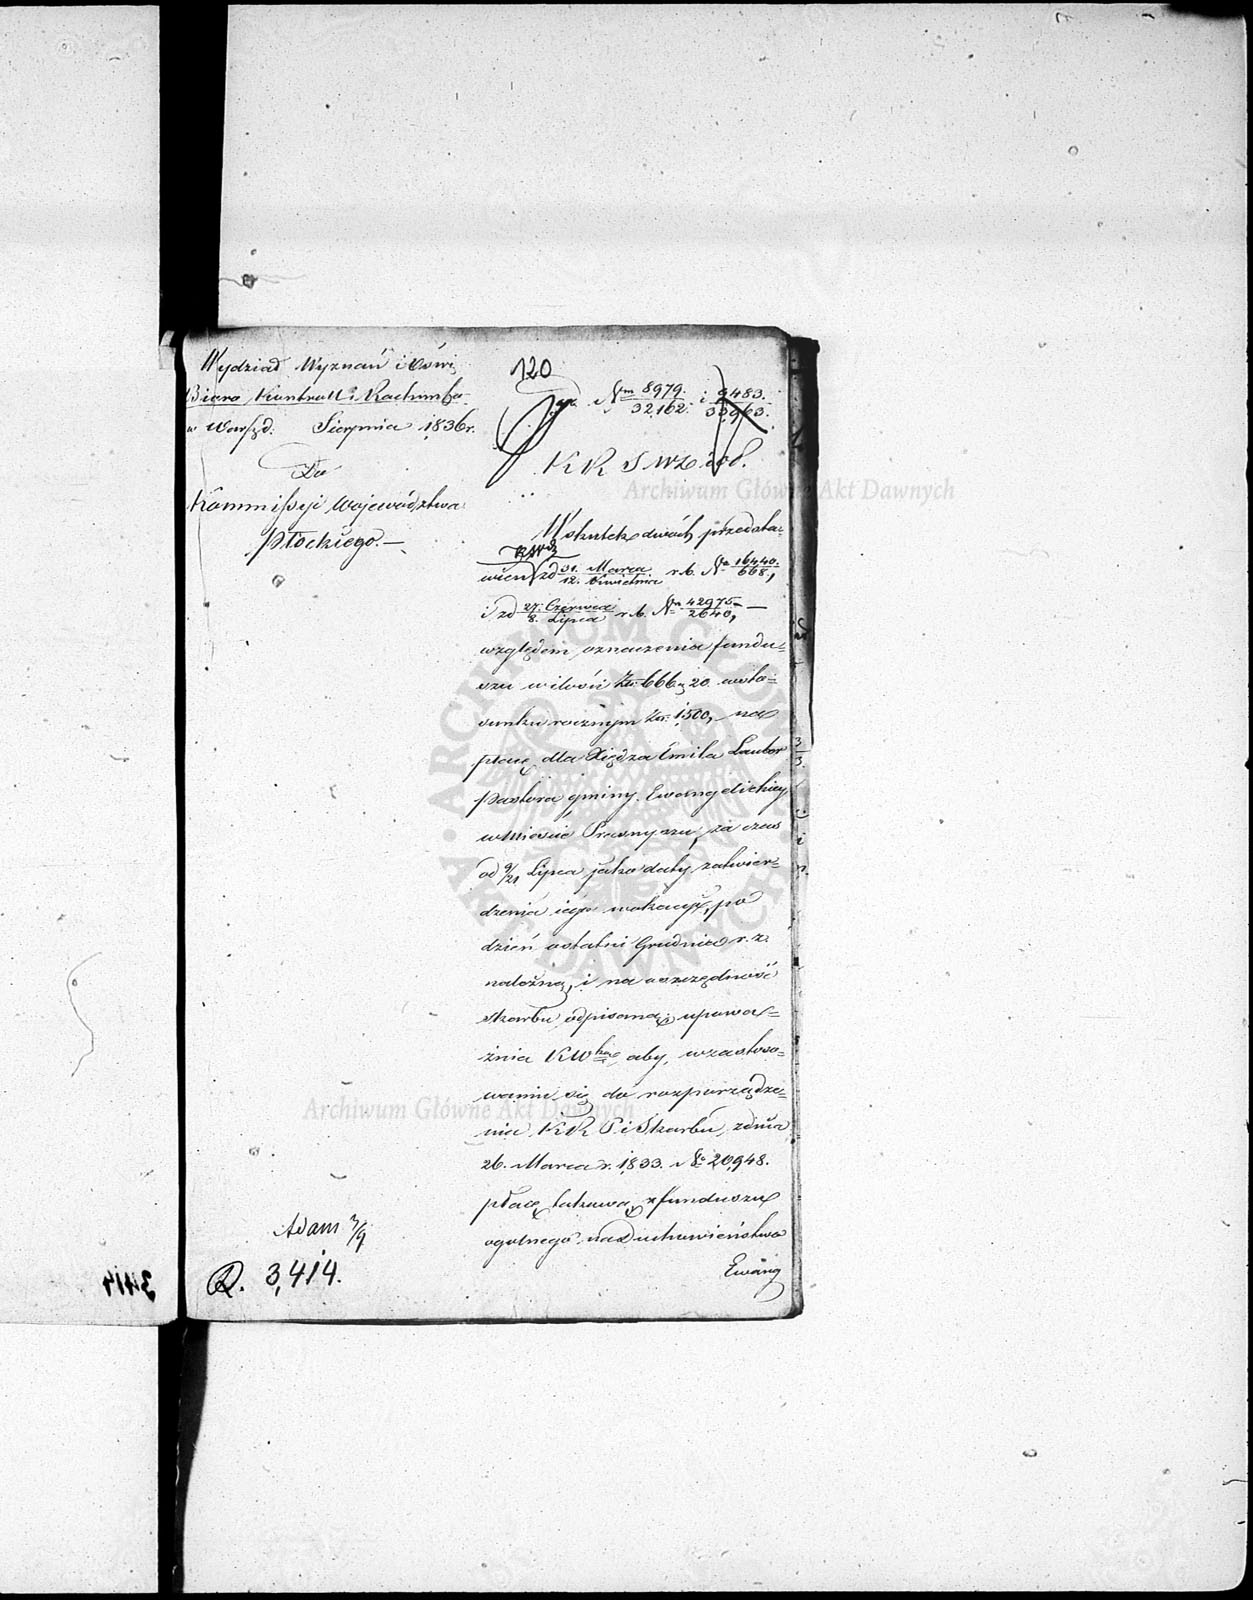 Wydział Wyznań i Oświ.
Biuro Kontrolli i Rachunko.
w Warsz d. Sierpnia 1836 r.
Do
Kommissyi Województwa
Płockiego.—
Adam 3/9
R. 3,414.
120
Nrm 8979./32,162. i 9483./33,963.
K R S W D i O P.
Wskutek dwóch przedsta-
wień KWdz z d 31. Marca/12. Kwietnia r. b. No 16440./668.,
i z d 27. Czerwca/8. Lipca r. b. Nrm 42975/2640, —
względem oznaczenia fundu-
szu w ilości Złp 666 g 20. w sto-
sunku rocznym Złp. 1,500, na
płacę dla Xiędza Emila Lauber
Pastora gminy Ewangelickiey
w Mieście Prasnyszu, za czas
od 9/21 Lipca jako daty zatwier-
dzenia iego wokacyi, po
dzień ostatni Grudnia r. z.
należną, i na oszczędność
Skarbu odpisaną; upoważ-
żnia KWką aby, w zastoso-
waniu się do rozporządze-
nia KR P i Skarbu, z dnia
26. Marca r. 1833. No 20,948.
płacę takową z funduszu
ogólnego na Duchowieństwo
Ewang
3414
Archiwum Główne Akt Dawnych
Archiwum Główne Akt Dawnych
ARCHIWUM GŁÓWNE AKT DAWNYCH